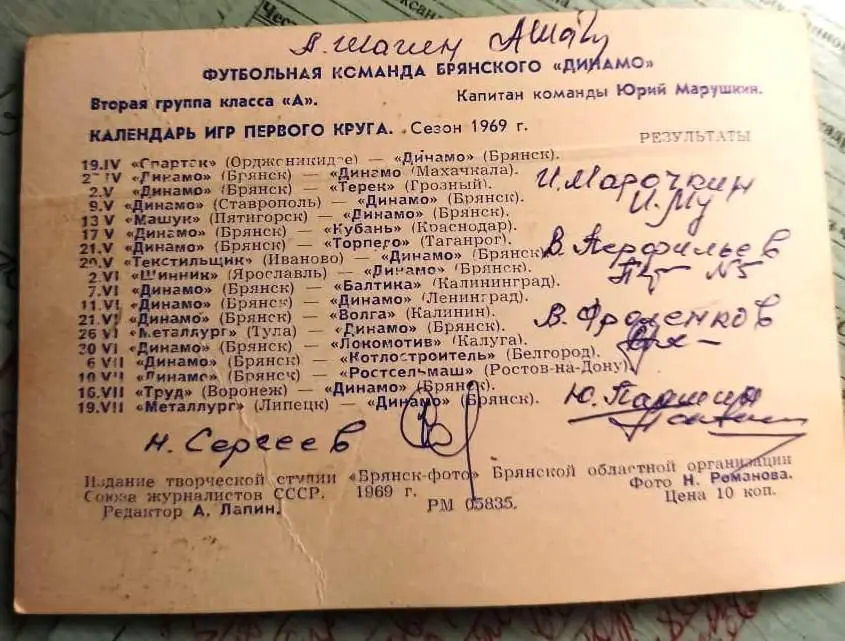 А. Шагин АШаг
ФУТБОЛЬНАЯ КОМАНДА БРЯНСКОГО «ДИНАМО»
Вторая группа класса «А». Капитан команды Юрий Марушкин.
КАЛЕНДАРЬ ИГР ПЕРВОГО КРУГА. Сезон 1969 г. РЕЗУЛЬТАТЫ
19.IV «Спартак» (Орджоникидзе) — «Динамо» (Брянск).
«Динамо» (Брянск) — «Динамо (Махачкала).
2.V «Динамо» (Брянск) — «Терек» (Грозный).
9.V «Динамо» (Ставрополь) — «Динамо» (Брянск).
13 V «Машук» (Пятигорск) — «Динамо» (Брянск).
17 V «Динамо» (Брянск) — «Кубань» (Краснодар).
21.V «Динамо» (Брянск) — «Торпедо» (Таганрог).
«Текстильщик» (Иваново) — «Динамо» (Брянск)
2.VI «Шинник» (Ярославль) — «Динамо» (Брянск).
7.VI «Динамо» (Брянск) — «Балтика» (Калининград).
11.VI «Динамо» (Брянск) — «Динамо» (Ленинград).
21.VI «Динамо» (Брянск) — «Волга» (Калинин).
26 VI «Металлург» (Тула) — «Динамо» (Брянск).
30 VI «Динамо» (Брянск) — «Локомотив» (Калуга).
6 VII «Динамо» (Брянск) — «Котлостроитель» (Белгород).
10 VII «Динамо» (Брянск) — «Ростсельмаш» (Ростов-на-Дону).
16.VII «Труд» (Воронеж) — «Динамо» (Брянск).
19.VII «Металлург» (Липецк) — «Динамо» (Брянск).
И. Марочкин
И.Му
В. Перфильев
В. Фроленков
Ю. Паршин
Н. Сергеев
Издание творческой ступии «Брянск-фото» Брянской областной организации
Союза журналистов СССР. 1969 г. Фото Н. Романова.
Редактор А. Лапин. РМ 05835. Цена 10 коп.